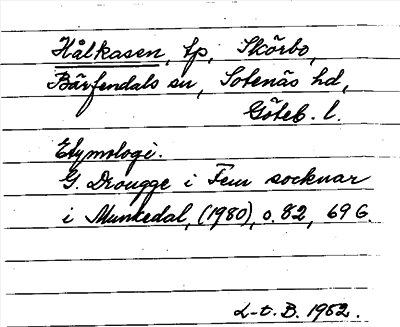 Hålkasen, tp, Skörbo,
Bärfendals sn, Sotenäs hd,
Göteb. l.
Etymologi.
G. Drougge i Fem socknar
i Munkedal, (1980), s. 82, 69 G.
L-t. B. 1982.